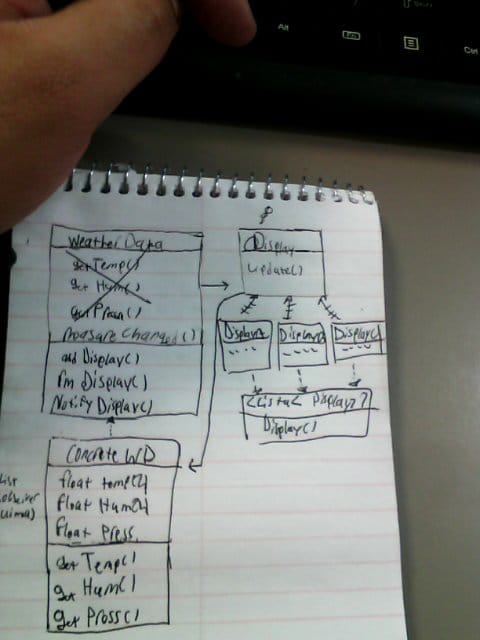 Alt
Ctrl
Weather Data
get Temp()
get Hum()
get Press()
Measure Changed()
add Display()
rm Display()
Notify Display()
Display
update()
Display
Display
Display
Display()
Concrete WD
float temp
float Hum
float Press
get Temp()
get Hum()
get Press()